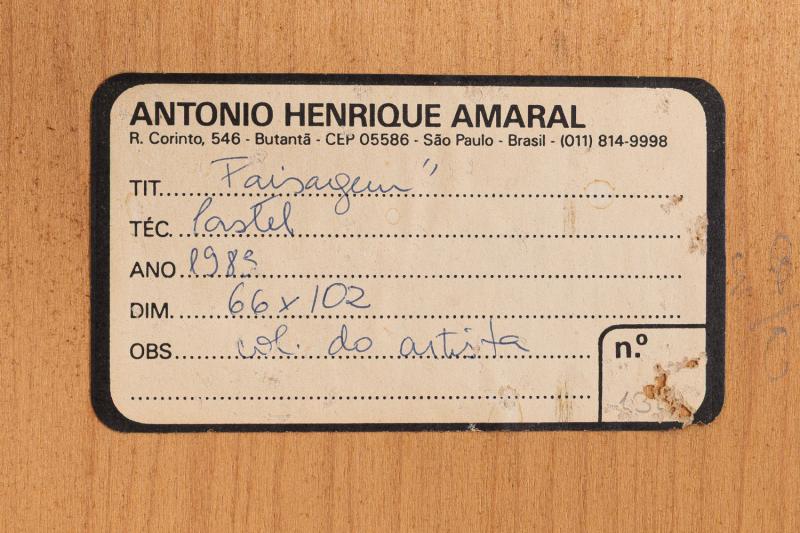 ANTONIO HENRIQUE AMARAL
R. Corinto, 546 - Butantã - CEP 05586 - São Paulo - Brasil - (011) 814-9998
TIT. Paisagem"
TÉC. Pastel
ANO 1983
DIM. 66 x 102
OBS. col. do artista
n.º